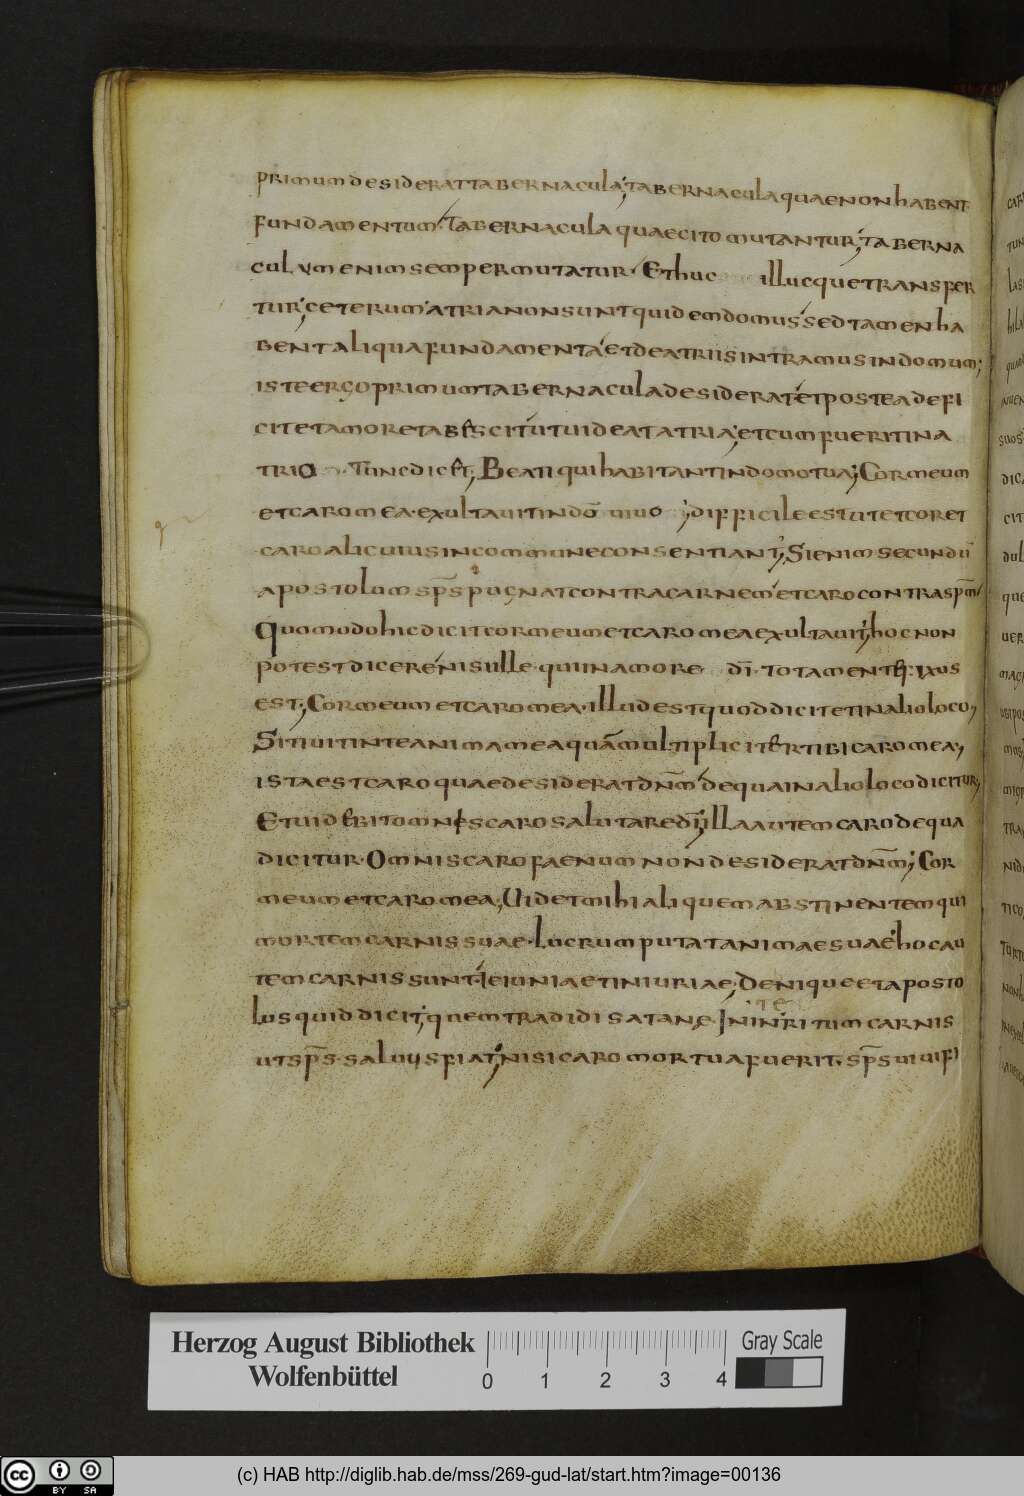 primum desiderat tabernacula; tabernacula quae non habent
fundamentum. Tabernacula quae cito mutantur; taberna
culum enim semper mutatur. Et huc illucque transfer
tur; ceterum atria non sunt quidem domus; sed tamen ha
bent aliqua fundamenta; et de atriis intramus in domum;
iste ergo primum tabernacula desiderat; et postea defi
cit et amore tabescit; ut uideat atria; et cum fuerit in a
trio . Tunc dicet; Beati qui habitant in domo tua; Cor meum
et caro mea. exultauit in dō uiuo ; difficile est ut et cor et
caro alicuius in commune consentiant; Si enim secundū
apostolum sp̄s pugnat contra carnem; et caro contra sp̄m;
Quomodo hic dicit cor meum et caro mea exultauit; hoc non
potest dicere; nisi ille. qui in amore dī. tota mente fixus
est; Cor meum et caro mea. illud est quod dicit et in alio loco;
Sitiuit in te anima mea quā multipliciter tibi caro mea;
ista est caro quae desiderat dn̄m; de qua in alio loco dicitur;
Et uidebit omnis caro salutare dī; illa autem caro de qua
dicitur. Omnis caro faenum non desiderat dn̄m; Cor
meum et caro mea; Uidet mihi aliquem abstinentem qui
mortem carnis suae. lucrum putat animae suae; hoc au
tem carnis sunt. Ieiunia et iniuriae; Denique et aposto
lus quid dicit; quem tradidi satanę. In inťritum carnis
te
ut sp̄s saluus fiat; nisi caro mortua fuerit. sp̄s uiuifi
Herzog August Bibliothek
Wolfenbüttel
0 1 2 3 4
Gray Scale
cc BY SA
(c) HAB http://diglib.hab.de/mss/269-gud-lat/start.htm?image=00136